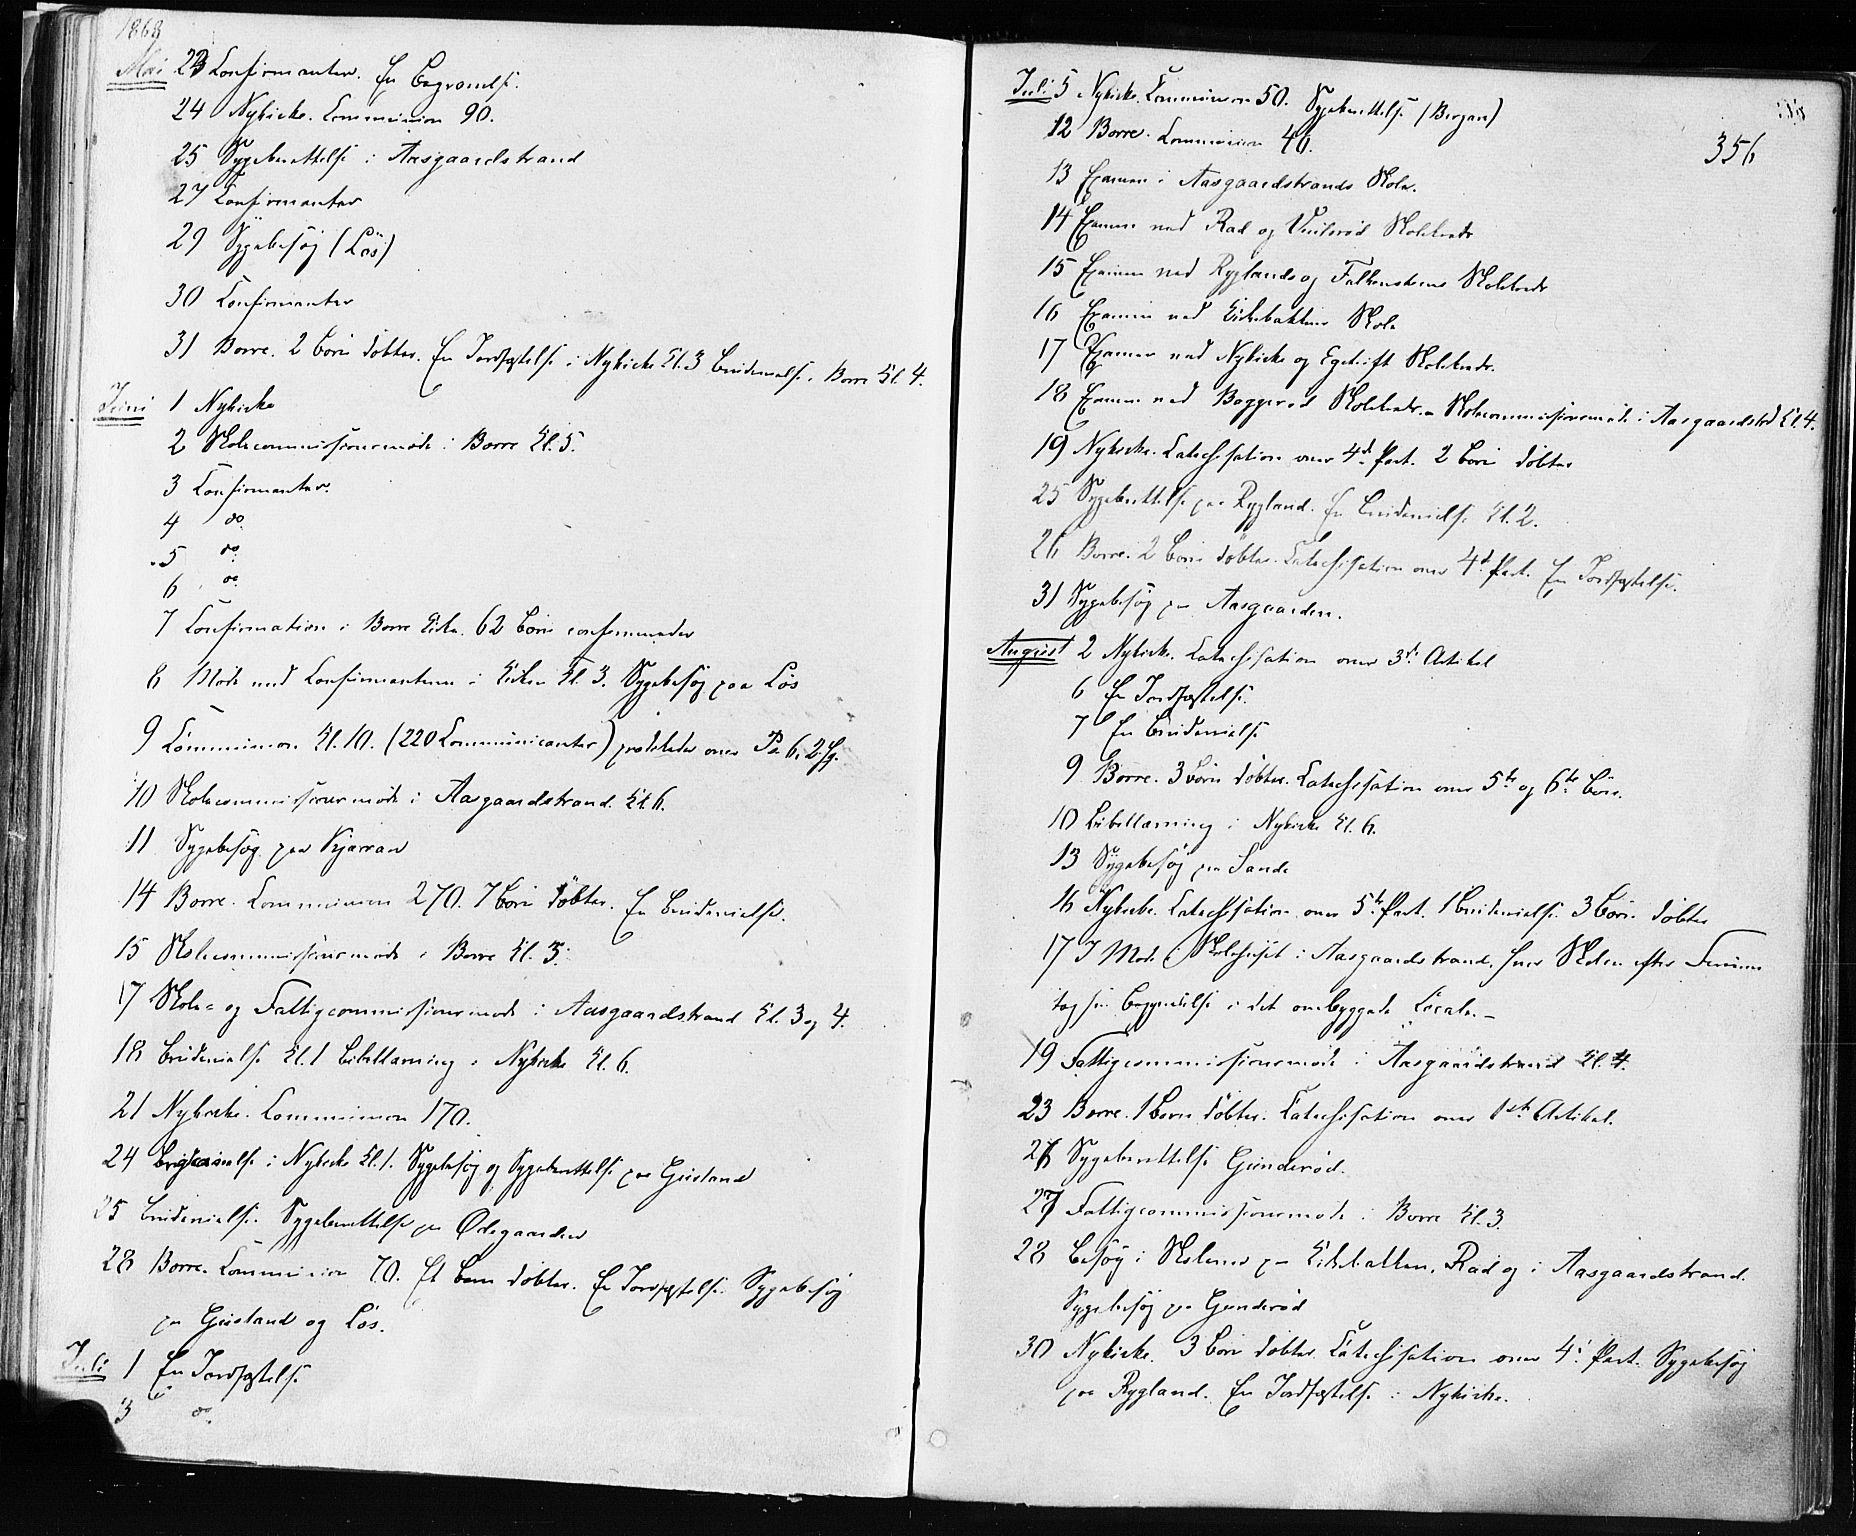 1868
Mai 23 Confirmanter. En Begravelse.
24 Nykirke. Communion 90.
25 Sygeberettelse i Aasgaardstrand
27 Confirmanter
29 Sygebesøg (Løs)
30 Confirmanter
31 Borre. 2 Børn døbte. En Jordfæstelse i Nykirke Kl. 3 Brudevielse i Borre Kl. 4.
Juni 1 Nykirke
2 Skolecommissionsmøde i Borre Kl. 5.
3 Confirmanter.
4 do.
5 do.
6 do.
7 Confirmation i Borre Kirke. 62 Børn confirmerede
8 Møde med Confirmanterne i Kirken Kl. 3. Sygebesøg paa Løs
9 Communion Kl. 10. (220 Communicanter) prædikede over Ps. 6, 2. fg.
10 Skolecommissionsmøde i Aasgaardstrand Kl. 6.
11 Sygebesøg paa Kjærran
14 Borre. Communion 270. 7 Børn døbte. En Brudevielse.
15 Skolecommissionsmøde i Borre Kl. 3.
17 Skole- og Fattigcommissionsmøde i Aasgaardstrand Kl. 3 og 4.
18 Brudevielse Kl. 1 Bibellæsning i Nykirke Kl. 6.
21 Nykirke. Communion 170.
24 Brudevielse i Nykirke Kl. 1. Sygebesøg og Sygeberettelse paa Gusland
25 Brudevielse. Sygeberettelse paa Ødegaarden
28 Borre. Communion 70. Et Barn døbte. En Jordfæstelse. Sygebesøg
paa Gusland og Løs.
Juli 1 En Jordfæstelse
3 do.
356
Juli 5 Nykirke. Communion 50. Sygeberettelse (Bergan)
12 Borre. Communion 46.
13 Examen i Aasgaardstrands Skole.
14 Examen ved Rad og Skolekreds
15 Examen ved Ryglands og Falkenstens Skolekreds
16 Examen ved Kirkebakkens Skole
17 Examen ved Nykirke og Skolekreds.
18 Examen ved Skolekreds. Skolecommissionsmøde i Aasgaardstrd Kl. 4.
19 Nykirke. Catechisation over 4de Part. 2 Børn døbte
25 Sygeberettelse paa Rygland. En Brudevielse Kl. 2.
26 Borre. 2 Børn døbte. Catechisation over 4de Part. En Jordfæstelse.
31 Sygebesøg paa Aasgaarden.
August 2 Nykirke. Catechisation over 3die Artikel
6 En Jordfæstelse.
7 En Brudevielse
9 Borre. 3 Børn døbte. Catechisation over 5te og 6te Bøn.
10 Bibellæsning i Nykirke Kl. 6.
13 Sygebesøg paa Sande
16 Nykirke. Catechisation over 5te Part. 1 Brudevielse 3 Børn døbte
17 I Møde i Skolehuset i Aasgaardstrand, hvor Skolen efter Ferierne
tog sin Begyndelse i det ombyggede Locale.
19 Fattigcommissionsmøde i Aasgaardstrand Kl. 4.
23 Borre. 1 Barn døbte. Catechisation over 1ste Artikel.
26 Sygeberettelse Gunderød.
27 Fattigcommissionsmøde i Borre Kl. 3.
28 Besøg i Skolerne paa Kirkebakken, Rad og i Aasgaardstrand.
Sygebesøg paa Gunderød
30 Nykirke. 3 Børn døbte. Catechisation over 4de Part. Sygebesøg
paa Rygland. En Jordfæstelse i Nykirke.